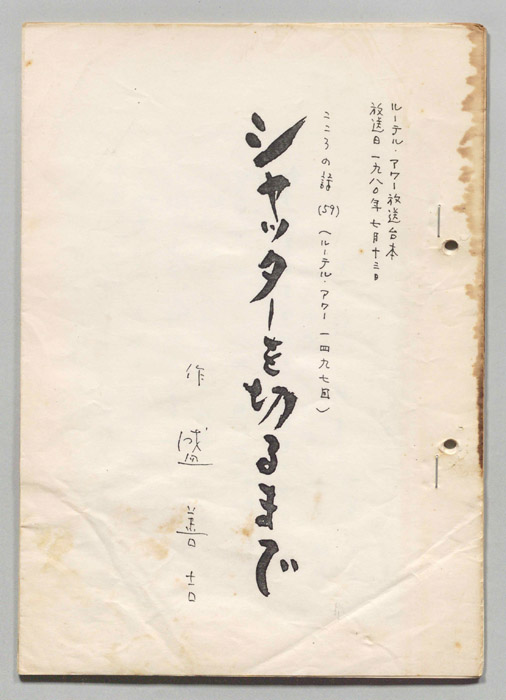 ルーテル・アワー放送台本
放送日 一九八〇年 七月十三日
こころの詩 (59) (ルーテル・アワー 一四九七回)
シャッターを切るまで
作 盛 善吉